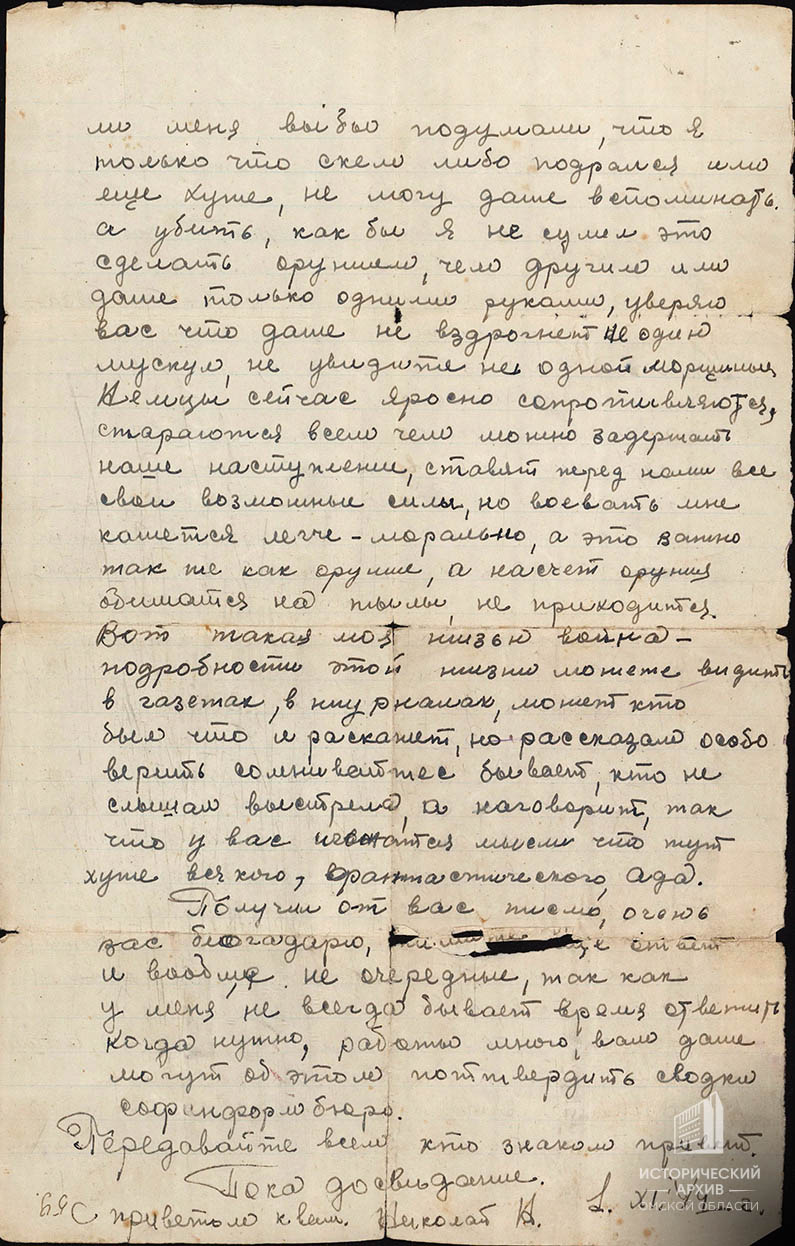 ли меня вы бы подумали, что я
только что скем либо подрался или
еще хуже, не могу даже вспоминать.
а убить, как бы я не сумел это
сделать оружием, чем другим или
даже только одними руками, уверяю
вас что даже не вздрогнет не один
мускул, не увидите не одной морщины
Немцы сейчас яросно сопротивляются,
стараются всем чем можно задержать
наше наступление, ставят перед нами все
свои возможные силы, но воевать мне
кажется легче - морально, а это важно
так же как оружие, а насчет оружия
обижатся на тылы, не приходится.
Вот такая моя жизью война -
подробности этой жизни можете видить
в газетах, в жиурналах, может кто
был что и раскажет, но рассказам особо
верить сомнивайтес бывает, кто не
слышал выстрела, а наговорит, так
что у вас мысли что тут
хуже всякого, франтастического, ада.
Получил от вас писмо, очень
вас благодарю, ответ
и вообще не очередные, так как
у меня не всегда бывает время ответить
когда нужно, работы много, вам даже
могут об этом поттвердить сводки
софинформбюро.
Передавайте всем кто знаком привет.
Пока досвидание.
С приветом к вам. Николай Н. 1. XI.
59.
ИСТОРИЧЕСКИЙ
АРХИВ
ОМСКОЙ ОБЛАСТИ